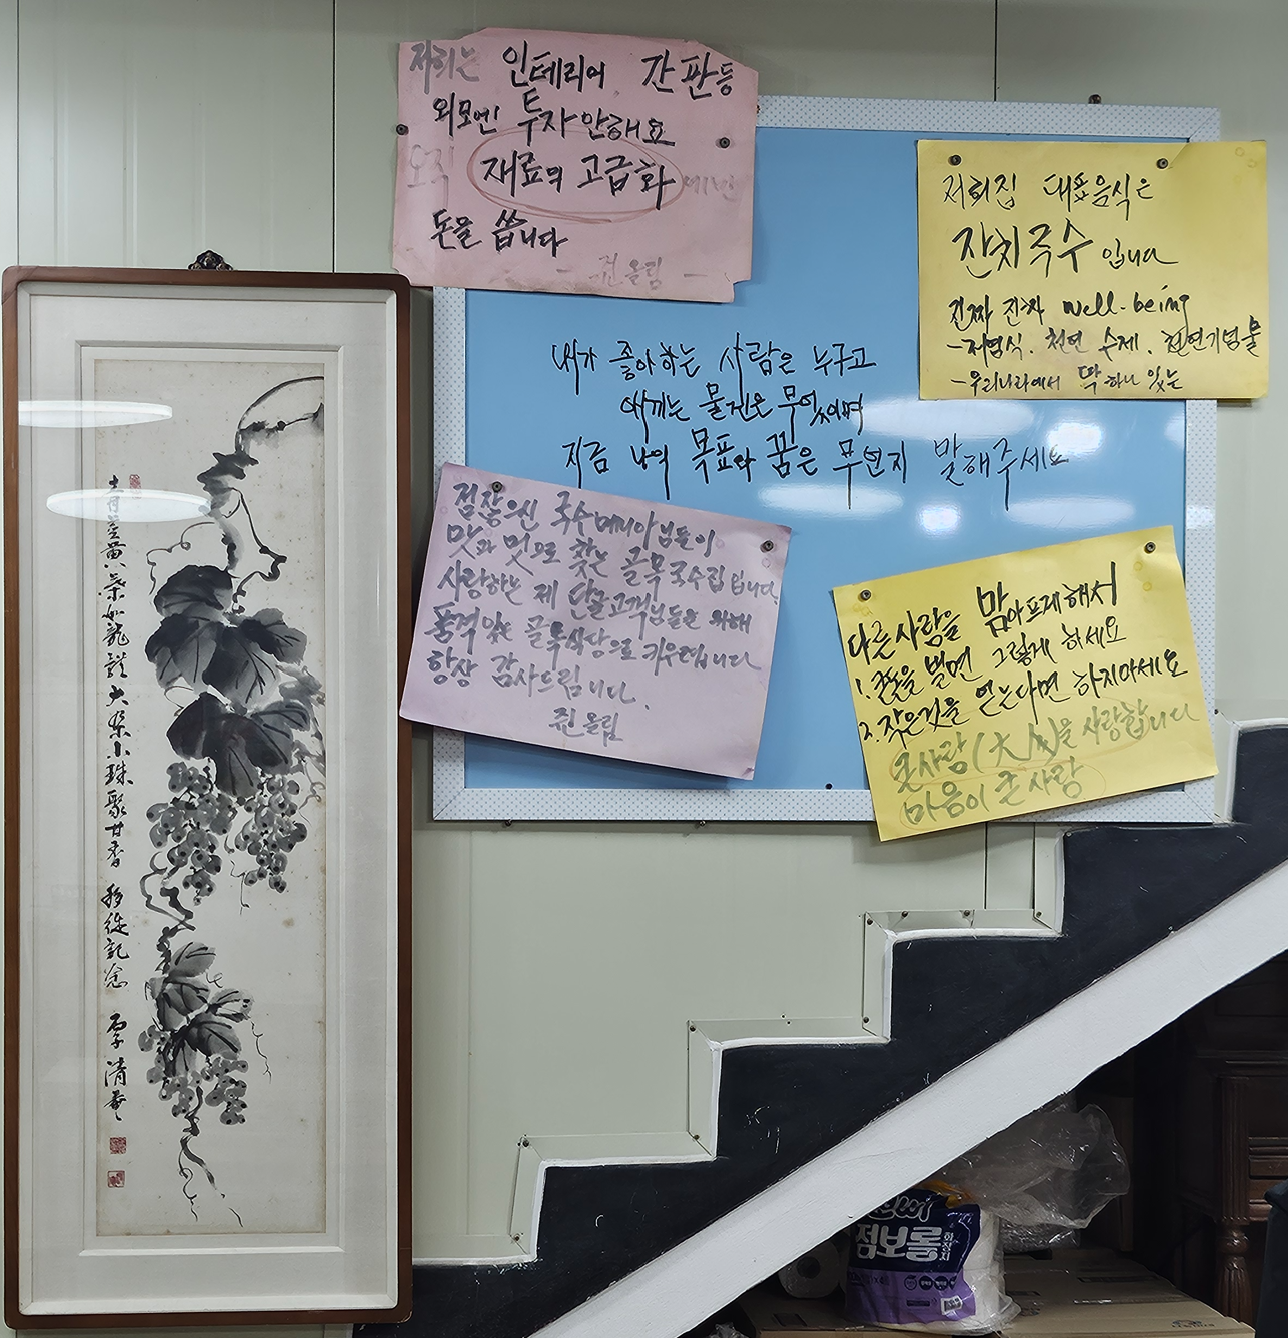 저희는 인테리어 간판등
외모엔 투자 안해요
오직 재료의 고급화에만
돈을 씁니다
- 쥔 올림 -
저희집 대표음식은
잔치국수 입니다
진짜 진짜 well-being
- 저염식. 천연 수제. 천연기념물
- 우리나라에서 딱 하나 있는
내가 좋아하는 사람은 누구고
아끼는 물건은 무엇이며
지금 나의 목표와 꿈은 무언지 말해주세요
점잖으신 국수매니아님들이
맛과 멋으로 찾는 골목국수집 입니다.
사랑하는 제 단골고객님들을 위해
품격있는 골목식당으로 키우렵니다
항상 감사드립니다.
쥔 올림
다른사람을 맘아프게 해서
1. 큰돈을 벌면 그렇게 하세요
2. 작은것을 얻는다면 하지마세요
큰사랑(大)을 사랑합니다
마음이 큰 사랑
大朶小珠聚甘香 移徙記念
점보롤
화장지